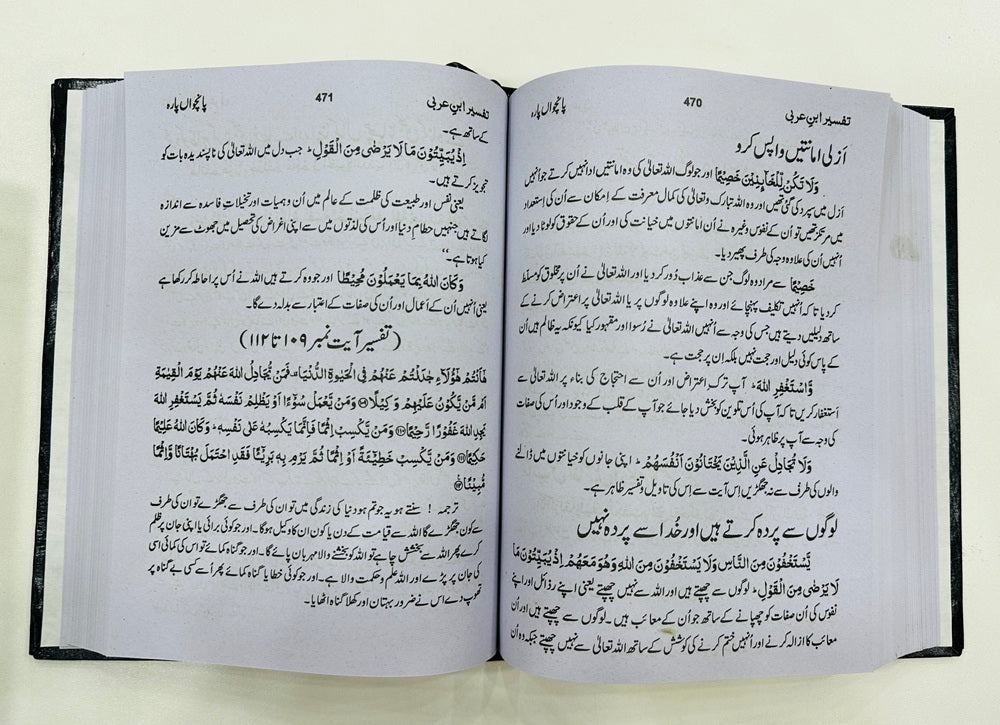 تفسیر ابنِ عربی 470 پانچواں پارہ
اَزلی امانتیں واپس کرو
وَلَا تَکُنْ لِّلْخَآىِٕنِیْنَ خَصِیْمًا اور جو لوگ اللہ تعالٰی کی وہ امانتیں ادا نہیں کرتے جو اُنہیں
ازل میں سپرد کی گئی تھیں اور وہ اللہ تبارک وتعالیٰ کی کمالِ معرفت کے اِمکان سے اُن کی اِستعداد
میں مرتکز تھیں تو اُن کے نفوس وغیرہ نے اُن امانتوں میں خیانت کی اور اُن کے حقوق کو لوٹا دیا اور
اُنہیں اُن کی علاوہ وجہ کی طرف پھیر دیا۔
خَصِیْمًا سے مراد وہ لوگ جن سے عذاب دُور کر دیا اور اللہ تعالیٰ نے اُن پر مخلوق کو مسلّط
کر دیا تا کہ اُنہیں تکلیف پہنچائے اور وہ اپنے علاوہ لوگوں پر یا اللہ تعالیٰ پر اعتراض کرنے کے
ساتھ دلیلیں دیتے ہیں جس کی وجہ سے اُنہیں اللہ تعالیٰ نے رُسوا اور مقہور کیا کیونکہ یہ ظالم ہیں اُن
کے پاس کوئی دلیل اور حجت نہیں بلکہ اِن پر حجت ہے۔
وَّاسْتَغْفِرِ اللهَ ؕ آپ ترکِ اعتراض اور اُن سے احتجاج کی بناء پر اللہ تعالیٰ سے
استغفار کریں تا کہ آپ کی اُس تکوین کو بخش دیا جائے جو آپ کے قلب کے وجود اور اُس کی صفات
کی وجہ سے آپ پر ظاہر ہوئی۔
وَلَا تُجَادِلْ عَنِ الَّذِیْنَ یَخْتَانُوْنَ اَنْفُسَهُمْ ؕ اپنی جانوں کو خیانتوں میں ڈالنے
والوں کی طرف سے نہ جھگڑیں اِس آیت سے اِس کی تاویل و تفسیر ظاہر ہے۔
لوگوں سے پردہ کرتے ہیں اور خُدا سے پردہ نہیں
یَّسْتَخْفُوْنَ مِنَ النَّاسِ وَلَا یَسْتَخْفُوْنَ مِنَ اللهِ وَهُوَ مَعَهُمْ اِذْ یُبَیِّتُوْنَ مَا
لَا یَرْضٰی مِنَ الْقَوْلِ ؕ لوگوں سے چھپتے ہیں اور اللہ سے نہیں چھپتے یعنی اپنے رذائل اور اپنے
نفوس کی اُن صفات کو چھپانے کے ساتھ جو اُن کے معائب ہیں۔ لوگوں سے چھپتے ہیں اور اُن
معائب کا ازالہ کرنے اور اُنہیں ختم کرنے کی کوشش کے ساتھ اللہ تعالیٰ سے نہیں چھپتے جبکہ وہ اُن
تفسیر ابنِ عربی 471 پانچواں پارہ
کے ساتھ ہے۔
اِذْ یُبَیِّتُوْنَ مَا لَا یَرْضٰی مِنَ الْقَوْلِ ؕ جب دل میں اللہ تعالیٰ کی ناپسندیدہ بات کو
تجویز کرتے ہیں۔
یعنی نفس اور طبیعت کی ظلمت کے عالم میں اُن وہمیات اور تخیلاتِ فاسدہ سے اندازہ
لگاتے ہیں جنہیں حطامِ دنیا اور اُس کی لذتوں میں سے اپنی اغراض کی تحصیل میں جھوٹ سے مزین
کیا ہوتا ہے۔‘‘
وَکَانَ اللهُ بِمَا یَعْمَلُوْنَ مُحِیْطًا اور جو وہ کرتے ہیں اللہ نے اُس پر احاطہ کر رکھا ہے
یعنی اُنہیں اُن کے اَعمال اور اُن کی صفات کے اعتبار سے بدلہ دے گا۔
(تفسیر آیت نمبر ۱۰۹ تا ۱۱۲)
هٰۤاَنْتُمْ هٰۤؤُلَآءِ جٰدَلْتُمْ عَنْهُمْ فِی الْحَیٰوةِ الدُّنْیَا ۫ فَمَنْ یُّجَادِلُ اللهَ عَنْهُمْ یَوْمَ الْقِیٰمَةِ
اَمْ مَّنْ یَّکُوْنُ عَلَیْهِمْ وَکِیْلًا ۝ وَمَنْ یَّعْمَلْ سُوْٓءًا اَوْ یَظْلِمْ نَفْسَهٗ ثُمَّ یَسْتَغْفِرِ اللهَ
یَجِدِ اللهَ غَفُوْرًا رَّحِیْمًا ۝ وَمَنْ یَّکْسِبْ اِثْمًا فَاِنَّمَا یَکْسِبُهٗ عَلٰی نَفْسِهٖ ؕ وَکَانَ اللهُ عَلِیْمًا
حَکِیْمًا ۝ وَمَنْ یَّکْسِبْ خَطِیْٓئَةً اَوْ اِثْمًا ثُمَّ یَرْمِ بِهٖ بَرِیْٓئًا فَقَدِ احْتَمَلَ بُهْتَانًا وَّاِثْمًا
مُّبِیْنًا ۝
ترجمہ! سنتے ہو یہ جو تم ہو دنیا کی زندگی میں تو ان کی طرف سے جھگڑے تو ان کی طرف
سے کون جھگڑے گا اللہ سے قیامت کے دن یا کون ان کا وکیل ہوگا۔ اور جو کوئی برائی یا اپنی جان پر ظلم
کرے پھر اللہ سے بخشش چاہے تو اللہ کو بخشنے والا مہربان پائے گا۔ اور جو گناہ کمائے تو اس کی کمائی اسی
کی جان پر پڑے اور اللہ علم و حکمت والا ہے۔ اور جو کوئی خطا یا گناہ کمائے پھر اُسے کسی بے گناہ پر
تھوپ دے اس نے ضرور بہتان اور کھلا گناہ اٹھایا۔